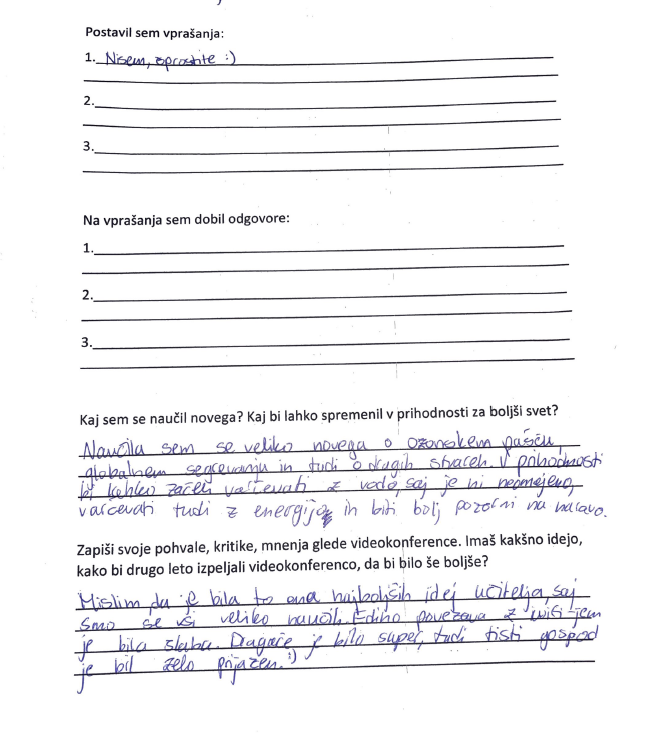 Postavil sem vprašanja:
1. Nisem, oprostite :)
2.
3.
Na vprašanja sem dobil odgovore:
1.
2.
3.
Kaj sem se naučil novega? Kaj bi lahko spremenil v prihodnosti za boljši svet?
Naučila sem se veliko novega o ozonskem plašču,
globalnem segrevanju in tudi o drugih stvareh. V prihodnosti
bi lahko začeli varčevati z vodo, saj je ni neomejeno,
varčevati tudi z energijo in biti bolj pozorni na naravo.
Zapiši svoje pohvale, kritike, mnenja glede videokonference. Imaš kakšno idejo,
kako bi drugo leto izpeljali videokonferenco, da bi bilo še boljše?
Mislim da je bila to ena najboljših idej učitelja, saj
smo se vsi veliko naučili. Edino povezava z
je bila slaba. Drugače je bilo super, tudi tisti gospod
je bil zelo prijazen. :)